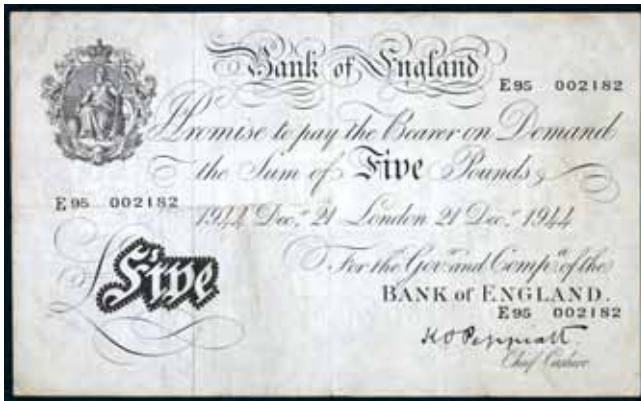 Bank of England
E95 002182
I Promise to pay the Bearer on Demand
the Sum of Five Pounds
E95 002182
1944 Dec.r 21 London 21 Dec.r 1944
Five
For the Gov.r and Comp.a of the
BANK of ENGLAND.
E95 002182
K O Peppiatt
Chief Cashier